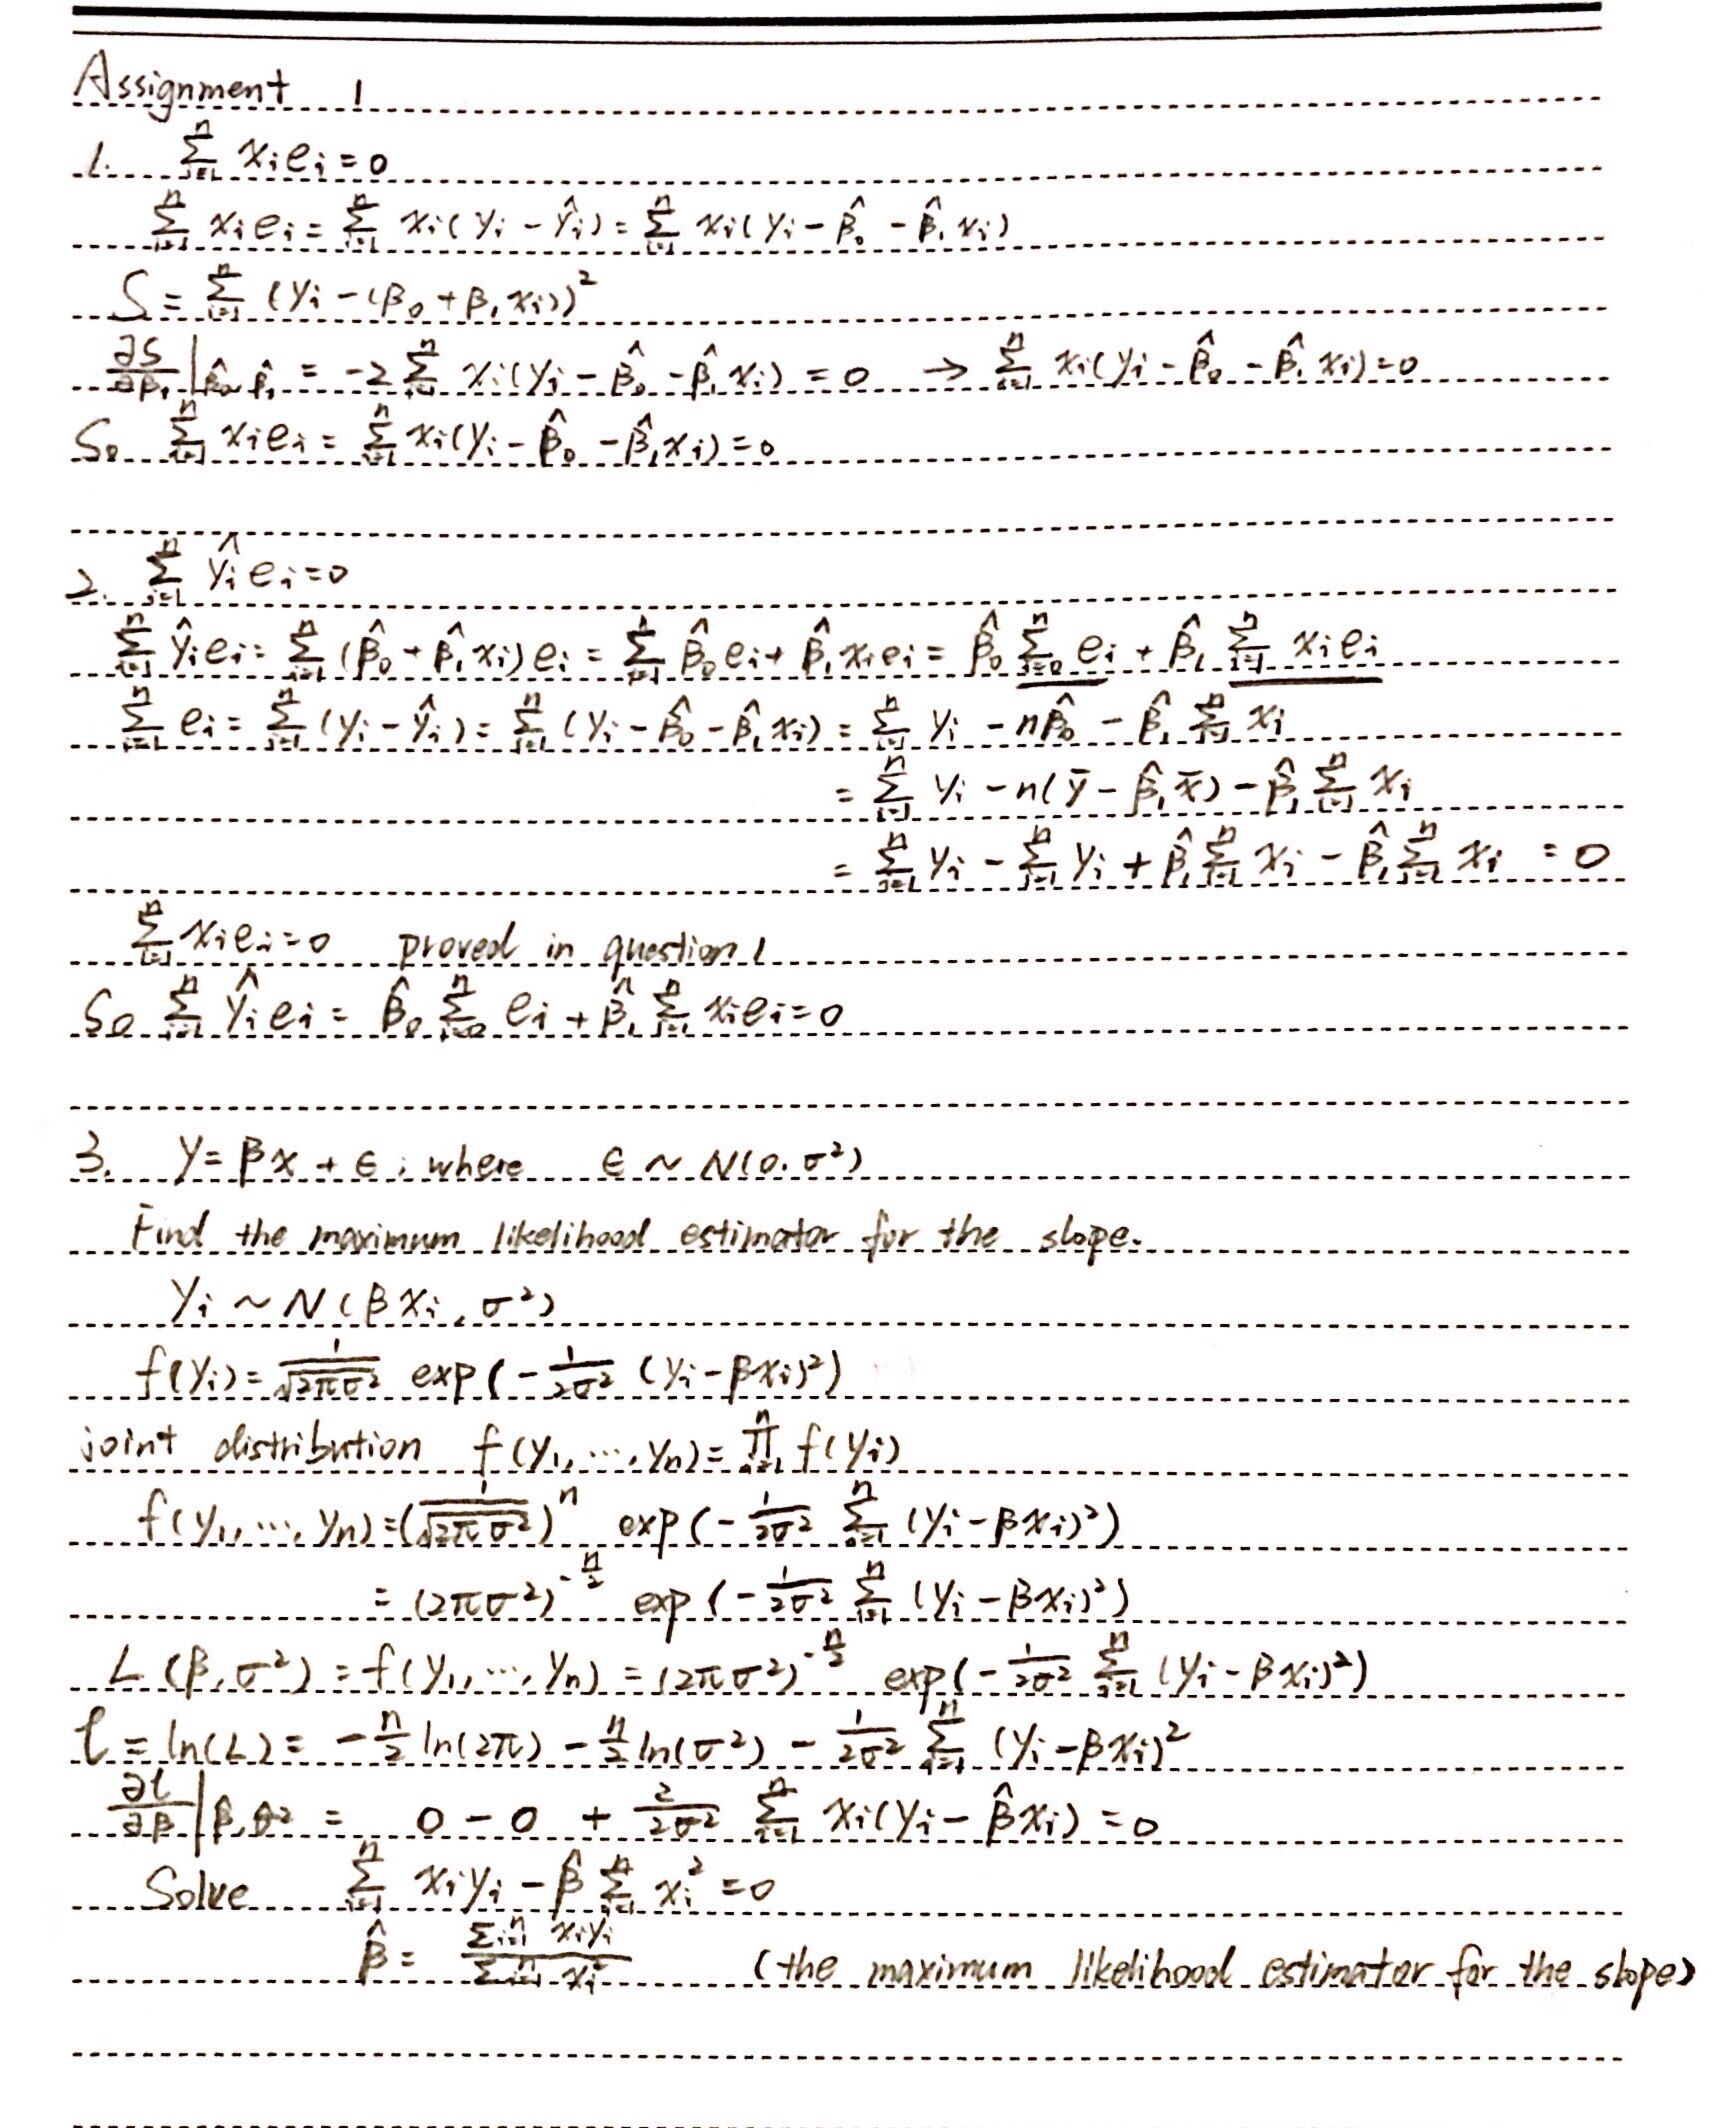 Assignment 1
1. ∑_{i=1}^{n} x_i e_i = 0
∑_{i=1}^{n} x_i e_i = ∑_{i=1}^{n} x_i (y_i - ŷ_i) = ∑_{i=1}^{n} x_i (y_i - β̂_0 - β̂_1 x_i)
S = ∑_{i=1}^{n} (y_i - (β_0 + β_1 x_i))^2
∂S/∂β_1 |_{β̂_0, β̂_1} = -2 ∑_{i=1}^{n} x_i (y_i - β̂_0 - β̂_1 x_i) = 0 → ∑_{i=1}^{n} x_i (y_i - β̂_0 - β̂_1 x_i) = 0
So ∑_{i=1}^{n} x_i e_i = ∑_{i=1}^{n} x_i (y_i - β̂_0 - β̂_1 x_i) = 0
2. ∑_{i=1}^{n} ŷ_i e_i = 0
∑_{i=1}^{n} ŷ_i e_i = ∑_{i=1}^{n} (β̂_0 + β̂_1 x_i) e_i = ∑_{i=1}^{n} β̂_0 e_i + β̂_1 x_i e_i = β̂_0 ∑_{i=0}^{n} e_i + β̂_1 ∑_{i=1}^{n} x_i e_i
∑_{i=1}^{n} e_i = ∑_{i=1}^{n} (y_i - ŷ_i) = ∑_{i=1}^{n} (y_i - β̂_0 - β̂_1 x_i) = ∑_{i=1}^{n} y_i - nβ̂_0 - β̂_1 ∑_{i=1}^{n} x_i
= ∑_{i=1}^{n} y_i - n(ȳ - β̂_1 x̄) - β̂_1 ∑_{i=1}^{n} x_i
= ∑_{i=1}^{n} y_i - ∑_{i=1}^{n} y_i + β̂_1 ∑_{i=1}^{n} x_i - β̂_1 ∑_{i=1}^{n} x_i = 0
∑_{i=1}^{n} x_i e_i = 0 proved in question 1
So ∑_{i=1}^{n} ŷ_i e_i = β̂_0 ∑_{i=0}^{n} e_i + β̂_1 ∑_{i=1}^{n} x_i e_i = 0
3. y = βx + ϵ, where ϵ ~ N(0, σ^2)
Find the maximum likelihood estimator for the slope.
y_i ~ N(βx_i, σ^2)
f(y_i) = 1/√(2πσ^2) exp(-1/(2σ^2) (y_i - βx_i)^2)
joint distribution f(y_1, ..., y_n) = ∏_{i=1}^{n} f(y_i)
f(y_1, ..., y_n) = (1/√(2πσ^2))^n exp(-1/(2σ^2) ∑_{i=1}^{n} (y_i - βx_i)^2)
= (2πσ^2)^{-n/2} exp(-1/(2σ^2) ∑_{i=1}^{n} (y_i - βx_i)^2)
L(β, σ^2) = f(y_1, ..., y_n) = (2πσ^2)^{-n/2} exp(-1/(2σ^2) ∑_{i=1}^{n} (y_i - βx_i)^2)
ℓ = ln(L) = -n/2 ln(2π) - n/2 ln(σ^2) - 1/(2σ^2) ∑_{i=1}^{n} (y_i - βx_i)^2
∂ℓ/∂β |_{β̂, σ̂^2} = 0 - 0 + 2/(2σ^2) ∑_{i=1}^{n} x_i (y_i - β̂x_i) = 0
Solve ∑_{i=1}^{n} x_i y_i - β̂ ∑_{i=1}^{n} x_i^2 = 0
β̂ = ∑_{i=1}^{n} x_i y_i / ∑_{i=1}^{n} x_i^2 (the maximum likelihood estimator for the slope)